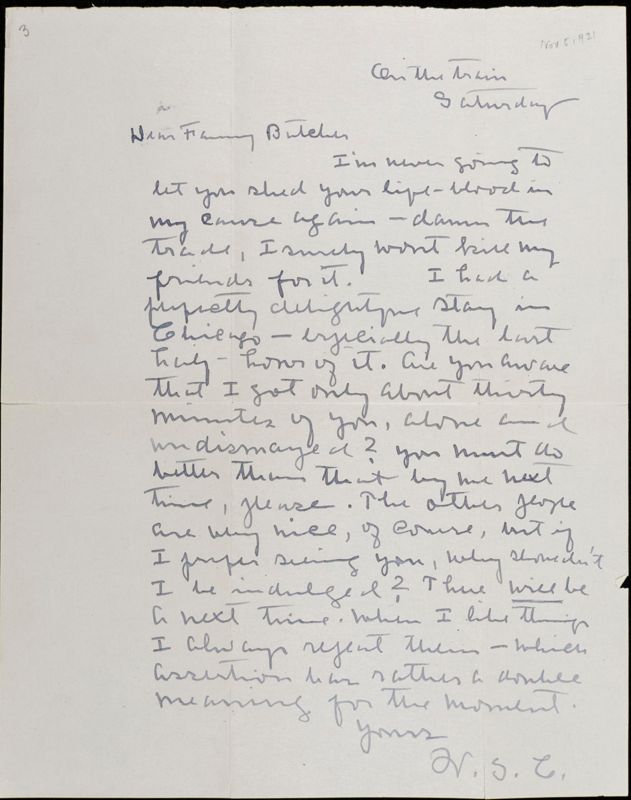 3
Nov 5, 1921
On the train
Saturday
Dear Fanny Butcher
I'm never going to
let you shed your life-blood in
my cause again – damn the
trade, I surely won't kill my
friends for it. I had a
perfectly delightful stay in
Chicago – especially the last
half-hour of it. Are you aware
that I got only about thirty
minutes of you, alone and
undismayed? You must do
better than that by me next
time, please. The other people
are very nice, of course, but if
I prefer seeing you, why shouldn't
I be indulged? There will be
a next time. When I like things
I always repeat them – which
assertion has rather a double
meaning for the moment.
Yours
W. S. C.